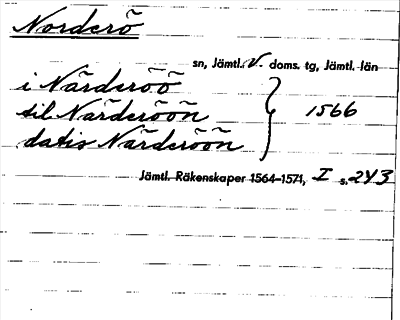 Norderö
sn, Jämtl. V. doms. tg, Jämtl. län
i Närderöö
til Närderöön
datis Närderöön
1566
Jämtl. Räkenskaper 1564-1571, I s. 243